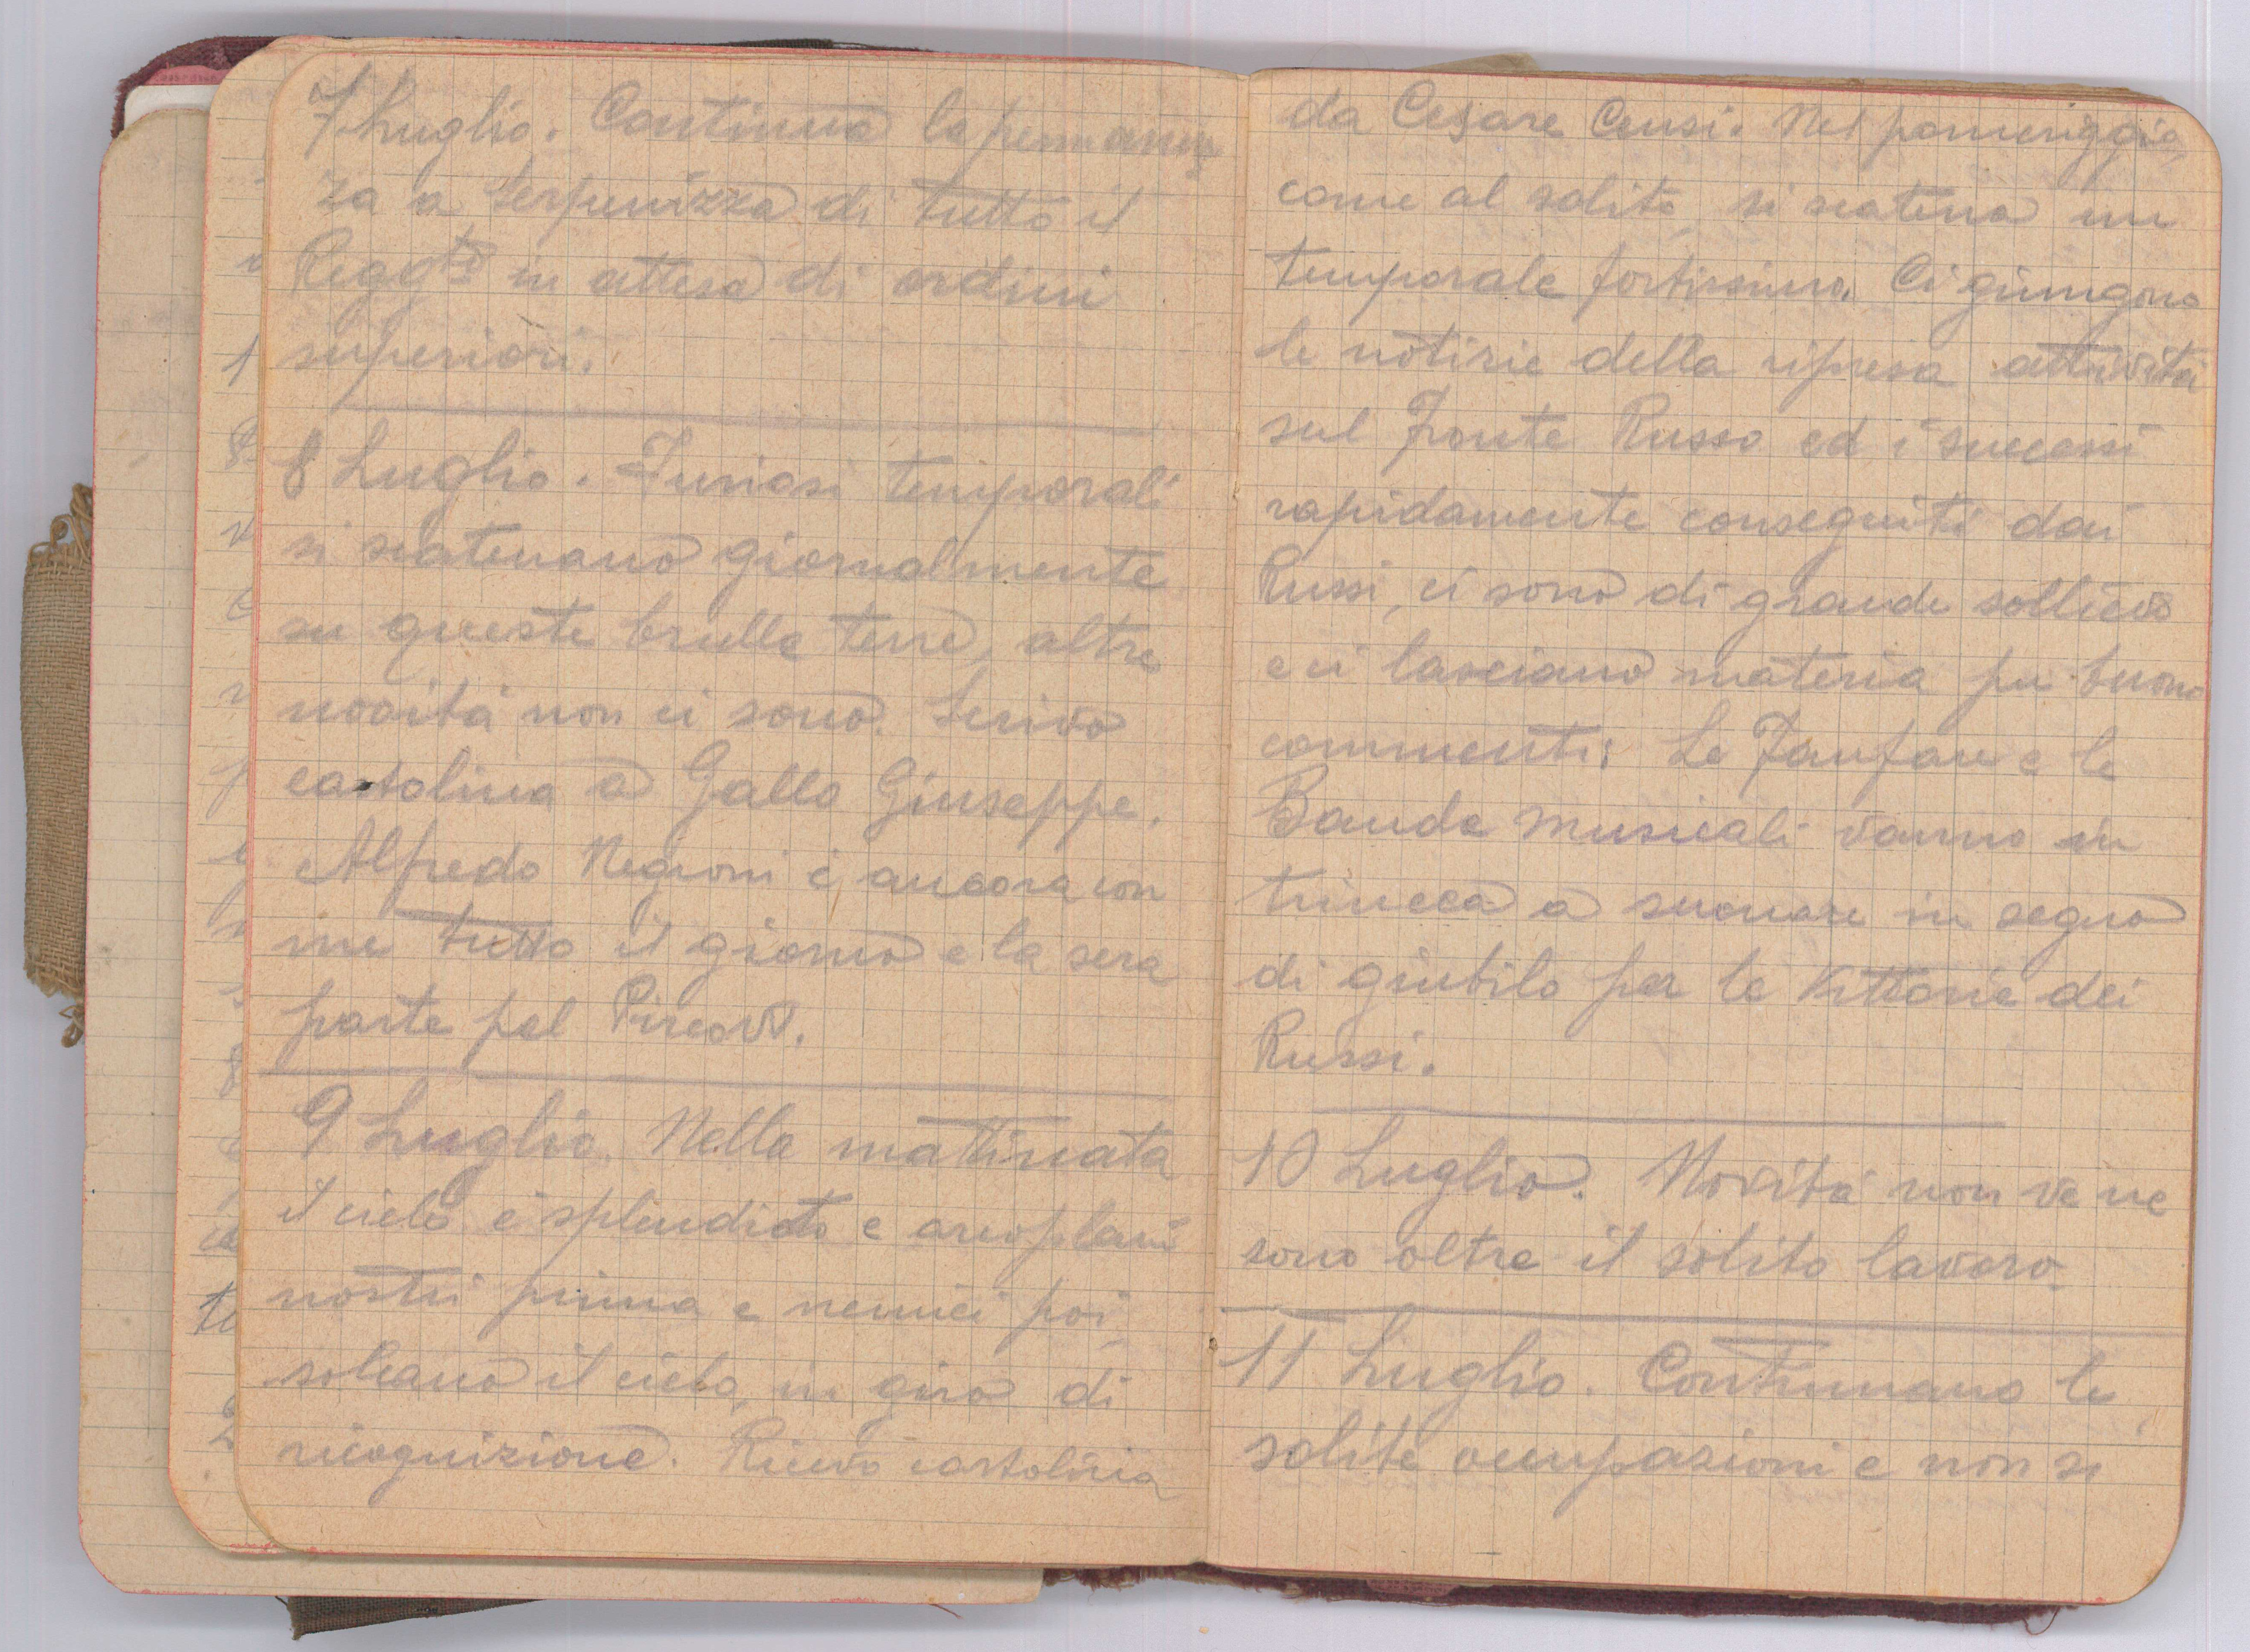 7 Luglio. Continua la permanen
za a Serpenizza di tutto il
Regg.to in attesa di ordini
superiori.
8 Luglio. Furiosi temporali
si scatenano giornalmente
su queste brulle terre, altre
novità non ci sono. Scrivo
cartolina a Gallo Giuseppe.
Alfredo Negroni è ancora con
me tutto il giorno e la sera
parte pel
9 Luglio. Nella mattinata
il cielo è splendido e areoplani
nostri prima e nemici poi
solcano il cielo, in giro di
ricognizione. Ricevo cartolina
da Cesare Censi. Nel pomeriggio,
come al solito, si scatena un
temporale fortissimo. Ci giungono
le notizie della ripresa attività
sul Fronte Russo ed i successi
rapidamente conseguiti dai
Russi, ci sono di grande sollievo
e ci lasciano materia per buoni
commenti; Le Fanfare e le
Bande musicali vanno in
trincea a suonare in segno
di giubilo per le Vittorie dei
Russi.
10 Luglio. Novità non ve ne
sono oltre il solito lavoro.
11 Luglio. Continuano le
solite occupazioni e non si